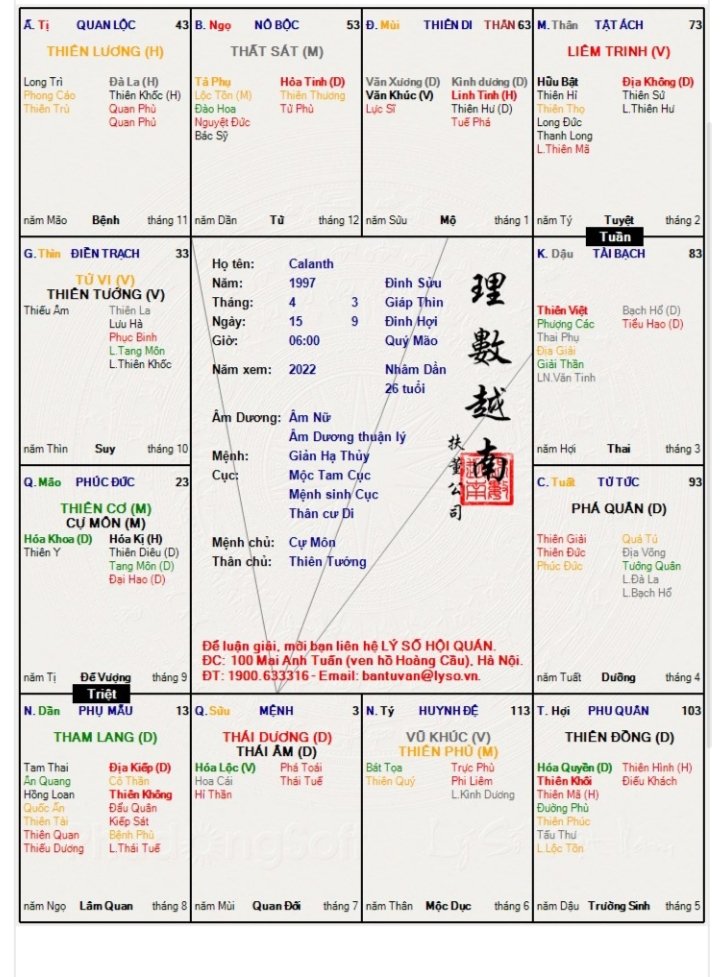 Ấ. Tị QUAN LỘC 43
THIÊN LƯƠNG (H)
Long Trì Đà La (H)
Phong Cáo Thiên Khốc (H)
Thiên Trù Quan Phù
Quan Phủ
năm Mão Bệnh tháng 11
B. Ngọ NÔ BỘC 53
THẤT SÁT (M)
Tả Phụ Hỏa Tinh (D)
Lộc Tồn (M) Thiên Thương
Đào Hoa Tử Phù
Nguyệt Đức
Bác Sỹ
năm Dần Tử tháng 12
Đ. Mùi THIÊN DI THÂN 63
Văn Xương (D) Kình dương (D)
Văn Khúc (V) Linh Tinh (H)
Lực Sĩ Thiên Hư (D)
Tuế Phá
năm Sửu Mộ tháng 1
M. Thân TẬT ÁCH 73
LIÊM TRINH (V)
Hữu Bật Địa Không (D)
Thiên Hỉ Thiên Sứ
Thiên Thọ L.Thiên Hư
Long Đức
Thanh Long
L.Thiên Mã
năm Tý Tuyệt tháng 2
Tuần
G. Thìn ĐIỀN TRẠCH 33
TỬ VI (V)
THIÊN TƯỚNG (V)
Thiếu Âm Thiên La
Lưu Hà
Phục Binh
L.Tang Môn
L.Thiên Khốc
năm Thìn Suy tháng 10
Họ tên: Calanth
Năm: 1997 Đinh Sửu
Tháng: 4 3 Giáp Thìn
Ngày: 15 9 Đinh Hợi
Giờ: 06:00 Quý Mão
Năm xem: 2022 Nhâm Dần
26 tuổi
Âm Dương: Âm Nữ
Âm Dương thuận lý
Mệnh: Giản Hạ Thủy
Cục: Mộc Tam Cục
Mệnh sinh Cục
Thân cư Di
Mệnh chủ: Cự Môn
Thân chủ: Thiên Tướng
理數越南
扶董公司
Để luận giải, mời bạn liên hệ LÝ SỐ HỘI QUÁN.
ĐC: 100 Mai Anh Tuấn (ven hồ Hoàng Cầu), Hà Nội.
ĐT: 1900.633316 - Email: bantuvan@lyso.vn.
K. Dậu TÀI BẠCH 83
Thiên Việt Bạch Hổ (D)
Phượng Các Tiểu Hao (D)
Thai Phụ
Địa Giải
Giải Thần
LN.Văn Tinh
năm Hợi Thai tháng 3
Q. Mão PHÚC ĐỨC 23
THIÊN CƠ (M)
CỰ MÔN (M)
Hóa Khoa (D) Hóa Kị (H)
Thiên Y Thiên Diêu (D)
Tang Môn (D)
Đại Hao (D)
năm Tị Đế Vượng tháng 9
Triệt
C. Tuất TỬ TỨC 93
PHÁ QUÂN (D)
Thiên Giải Quả Tú
Thiên Đức Địa Võng
Phúc Đức Tướng Quân
L.Đà La
L.Bạch Hổ
năm Tuất Dưỡng tháng 4
N. Dần PHỤ MẪU 13
THAM LANG (D)
Tam Thai Địa Kiếp (D)
Ân Quang Cô Thần
Hồng Loan Thiên Không
Quốc Ấn Đẩu Quân
Thiên Tài Kiếp Sát
Thiên Quan Bệnh Phù
Thiếu Dương L.Thái Tuế
năm Ngọ Lâm Quan tháng 8
Q. Sửu MỆNH 3
THÁI DƯƠNG (D)
THÁI ÂM (D)
Hóa Lộc (V) Phá Toái
Hoa Cái Thái Tuế
Hỉ Thần
năm Mùi Quan Đới tháng 7
N. Tý HUYNH ĐỆ 113
VŨ KHÚC (V)
THIÊN PHỦ (M)
Bát Tọa Trực Phù
Thiên Quý Phi Liêm
L.Kình Dương
năm Thân Mộc Dục tháng 6
T. Hợi PHU QUÂN 103
THIÊN ĐỒNG (D)
Hóa Quyền (D) Thiên Hình (H)
Thiên Khôi Điếu Khách
Thiên Mã (H)
Đường Phù
Thiên Phúc
Tấu Thư
L.Lộc Tồn
năm Dậu Trường Sinh tháng 5